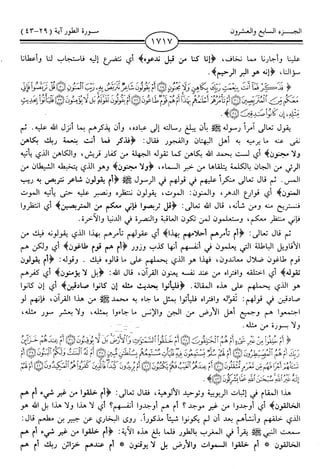 الجـزء السابع والعشرون
١٧١٧
سورة الطور آية (٢٩-٤٣)
علينا وأجارنا مما نخاف، ﴿إنا كنا من قبل ندعوه﴾ أي نتضرع إليه فاستجاب لنا وأعطانا
سؤالنا، ﴿إنه هو البر الرحيم﴾.
﴿ فَذَكِّرْ فَمَا أَنتَ بِنِعْمَتِ رَبِّكَ بِكَاهِنٍ وَلَا مَجْنُونٍ ﴿٢٩﴾ أَمْ يَقُولُونَ شَاعِرٌ نَّتَرَبَّصُ بِهِ رَيْبَ الْمَنُونِ ﴿٣٠﴾ قُلْ تَرَبَّصُوا فَإِنِّي
مَعَكُم مِّنَ الْمُتَرَبِّصِينَ ﴿٣١﴾ أَمْ تَأْمُرُهُمْ أَحْلَامُهُم بِهَٰذَا أَمْ هُمْ قَوْمٌ طَاغُونَ ﴿٣٢﴾ أَمْ يَقُولُونَ تَقَوَّلَهُ بَل لَّا يُؤْمِنُونَ ﴿٣٣﴾ فَلْيَأْتُوا بِحَدِيثٍ
مِّثْلِهِ إِن كَانُوا صَادِقِينَ ﴿٣٤﴾ ﴾
يقول تعالى آمراً رسوله ﷺ بأن يبلغ رسالته إلى عباده، وأن يذكرهم بما أنزل الله عليه. ثم
نفى عنه ما يرميه به أهل البهتان والفجور فقال: ﴿فذكر فما أنت بنعمة ربك بكاهن
ولا مجنون﴾ أي لست بحمد الله بكاهن كما تقوله الجهلة من كفار قريش، والكاهن الذي يأتيه
الرئي من الجان بالكلمة يتلقاها من خبر السماء، ﴿ولا مجنون﴾ وهو الذي يتخبطه الشيطان من
المس. ثم قال تعالى منكراً عليهم في قولهم في الرسول ﷺ ﴿أم يقولون شاعر نتربص به ريب
المنون﴾ أي قوارع الدهر، والمنون: الموت، يقولون ننتظره ونصبر عليه حتى يأتيه الموت
فنستريح منه ومن شأنه، قال الله تعالى: ﴿قل تربصوا فإني معكم من المتربصين﴾ أي انتظروا
فإني منتظر معكم، وستعلمون لمن تكون العاقبة والنصرة في الدنيا والآخرة.
ثم قال تعالى: ﴿أم تأمرهم أحلامهم بهذا﴾ أي عقولهم تأمرهم بهذا الذي يقولونه فيك من
الأقاويل الباطلة التي يعلمون في أنفسهم أنها كذب وزور ﴿أم هم قوم طاغون﴾ أي ولكن هم
قوم طاغون ضلال معاندون، فهذا هو الذي يحملهم على ما قالوه فيك . وقوله: ﴿أم يقولون
تقوله﴾ أي اختلقه وافتراه من عند نفسه يعنون القرآن، قال الله: ﴿بل لا يؤمنون﴾ أي كفرهم
هو الذي يحملهم على هذه المقالة. ﴿فليأتوا بحديث مثله إن كانوا صادقين﴾ أي إن كانوا
صادقين في قولهم: تَقَوَّله وافتراه فليأتوا بمثل ما جاء به محمد ﷺ من هذا القرآن، فإنهم لو
اجتمعوا هم وجميع أهل الأرض من الجن والإنس ما جاءوا بمثله، ولا بعشر سور مثله،
ولا بسورة من مثله.
﴿ أَمْ خُلِقُوا مِنْ غَيْرِ شَيْءٍ أَمْ هُمُ الْخَالِقُونَ ﴿٣٥﴾ أَمْ خَلَقُوا السَّمَاوَاتِ وَالْأَرْضَ بَل لَّا يُوقِنُونَ ﴿٣٦﴾ أَمْ عِندَهُمْ خَزَائِنُ
رَبِّكَ أَمْ هُمُ الْمُصَيْطِرُونَ ﴿٣٧﴾ أَمْ لَهُمْ سُلَّمٌ يَسْتَمِعُونَ فِيهِ فَلْيَأْتِ مُسْتَمِعُهُم بِسُلْطَانٍ مُّبِينٍ ﴿٣٨﴾ أَمْ لَهُ الْبَنَاتُ وَلَكُمُ الْبَنُونَ ﴿٣٩﴾ أَمْ
تَسْأَلُهُمْ أَجْرًا فَهُم مِّن مَّغْرَمٍ مُّثْقَلُونَ ﴿٤٠﴾ أَمْ عِندَهُمُ الْغَيْبُ فَهُمْ يَكْتُبُونَ ﴿٤١﴾ أَمْ يُرِيدُونَ كَيْدًا فَالَّذِينَ كَفَرُوا هُمُ الْمَكِيدُونَ ﴿٤٢﴾ أَمْ لَهُمْ
إِلَٰهٌ غَيْرُ اللَّهِ سُبْحَانَ اللَّهِ عَمَّا يُشْرِكُونَ ﴿٤٣﴾ ﴾
هذا المقام في إثبات الربوبية وتوحيد الألوهية، فقال تعالى: ﴿أم خلقوا من غير شيء أم هم
الخالقون﴾ أي أوجدوا من غير موجد؟ أم هم أوجدوا أنفسهم؟ أي لا هذا ولا هذا بل الله هو
الذي خلقهم وأنشأهم بعد أن لم يكونوا شيئاً مذكوراً. روى البخاري عن جبير بن مطعم قال:
سمعت النبي ﷺ يقرأ في المغرب بالطور فلما بلغ هذه الآية: ﴿أم خلقوا من غير شيء أم هم
الخالقون * أم خلقوا السموات والأرض بل لا يوقنون * أم عندهم خزائن ربك أم هم